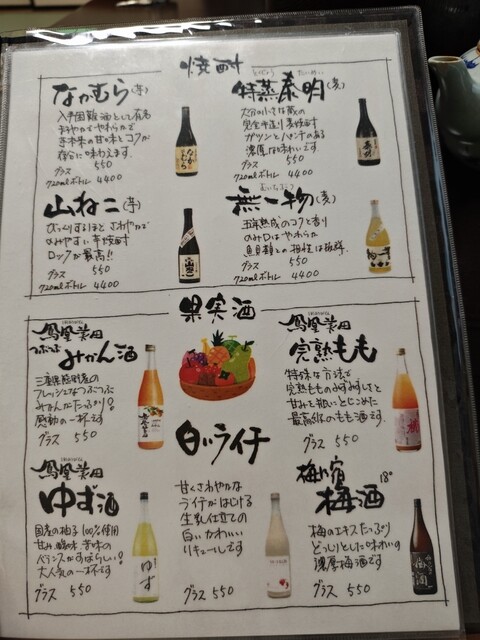 焼酎
なかむら(芋)
入手困難酒として有名
まろやかでやわらかで
芋本来の甘味とコクが
存分に味わえます。
グラス 550
720mlボトル 4400
特蒸泰明(麦)
とくじょう たいめい
大分の小さな蔵の
完全手造り麦焼酎
ガツンとパンチのある
濃厚な味わいです
グラス 550
720mlボトル 4400
山ねこ(芋)
びっくりするほどさわやかで
のみやすい芋焼酎
ロックが最高!!
グラス 550
720mlボトル 4400
無一物(麦)
むいちぶつ
五年熟成のコクと香り
のみ口はやわらか
魚貝類との相性は抜群。
グラス 550
720mlボトル 4400
果実酒
鳳凰美田
つぶつぶみかん酒
フレッシュなつぶつぶ
みかんたっぷり!
感動の一杯です
グラス 550
鳳凰美田
完熟もも
特殊な方法で
完熟もものみずみずしさと
甘みを瓶にとじこめた
最高位のもも酒です。
グラス 550
鳳凰美田
ゆず酒
国産の柚子100%使用
甘み、酸味、苦味の
バランスがすばらしい!
大人気の一杯です
グラス 550
白いライチ
甘くさわやかな
ライチがはじける
生乳仕立ての
白いかわいい
リキュールです
グラス 550
梅乃宿
梅酒 18°
梅のエキスたっぷり
どっしりとした味わいの
濃厚梅酒です
グラス 550